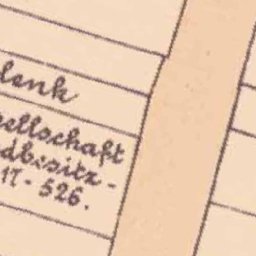 lenk
ellschaft
dbesitz -
17 - 526.